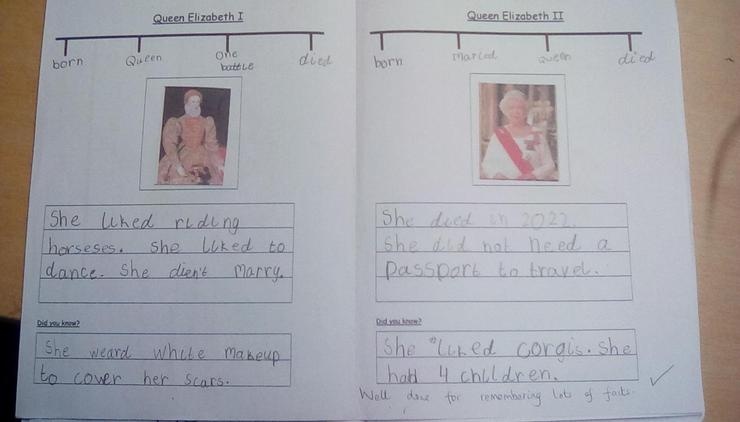 Queen Elizabeth I
born Queen one battle died
She liked riding
horseses. She liked to
dance. She dien't Marry.
Did you know?
She weard white makeup
to cover her scars.
Queen Elizabeth II
born Maried queen died
She died in 2022.
She did not need a
Passport to travel.
Did you know?
She liked corgis. She
had 4 children.
Well done for remembering lots of facts.